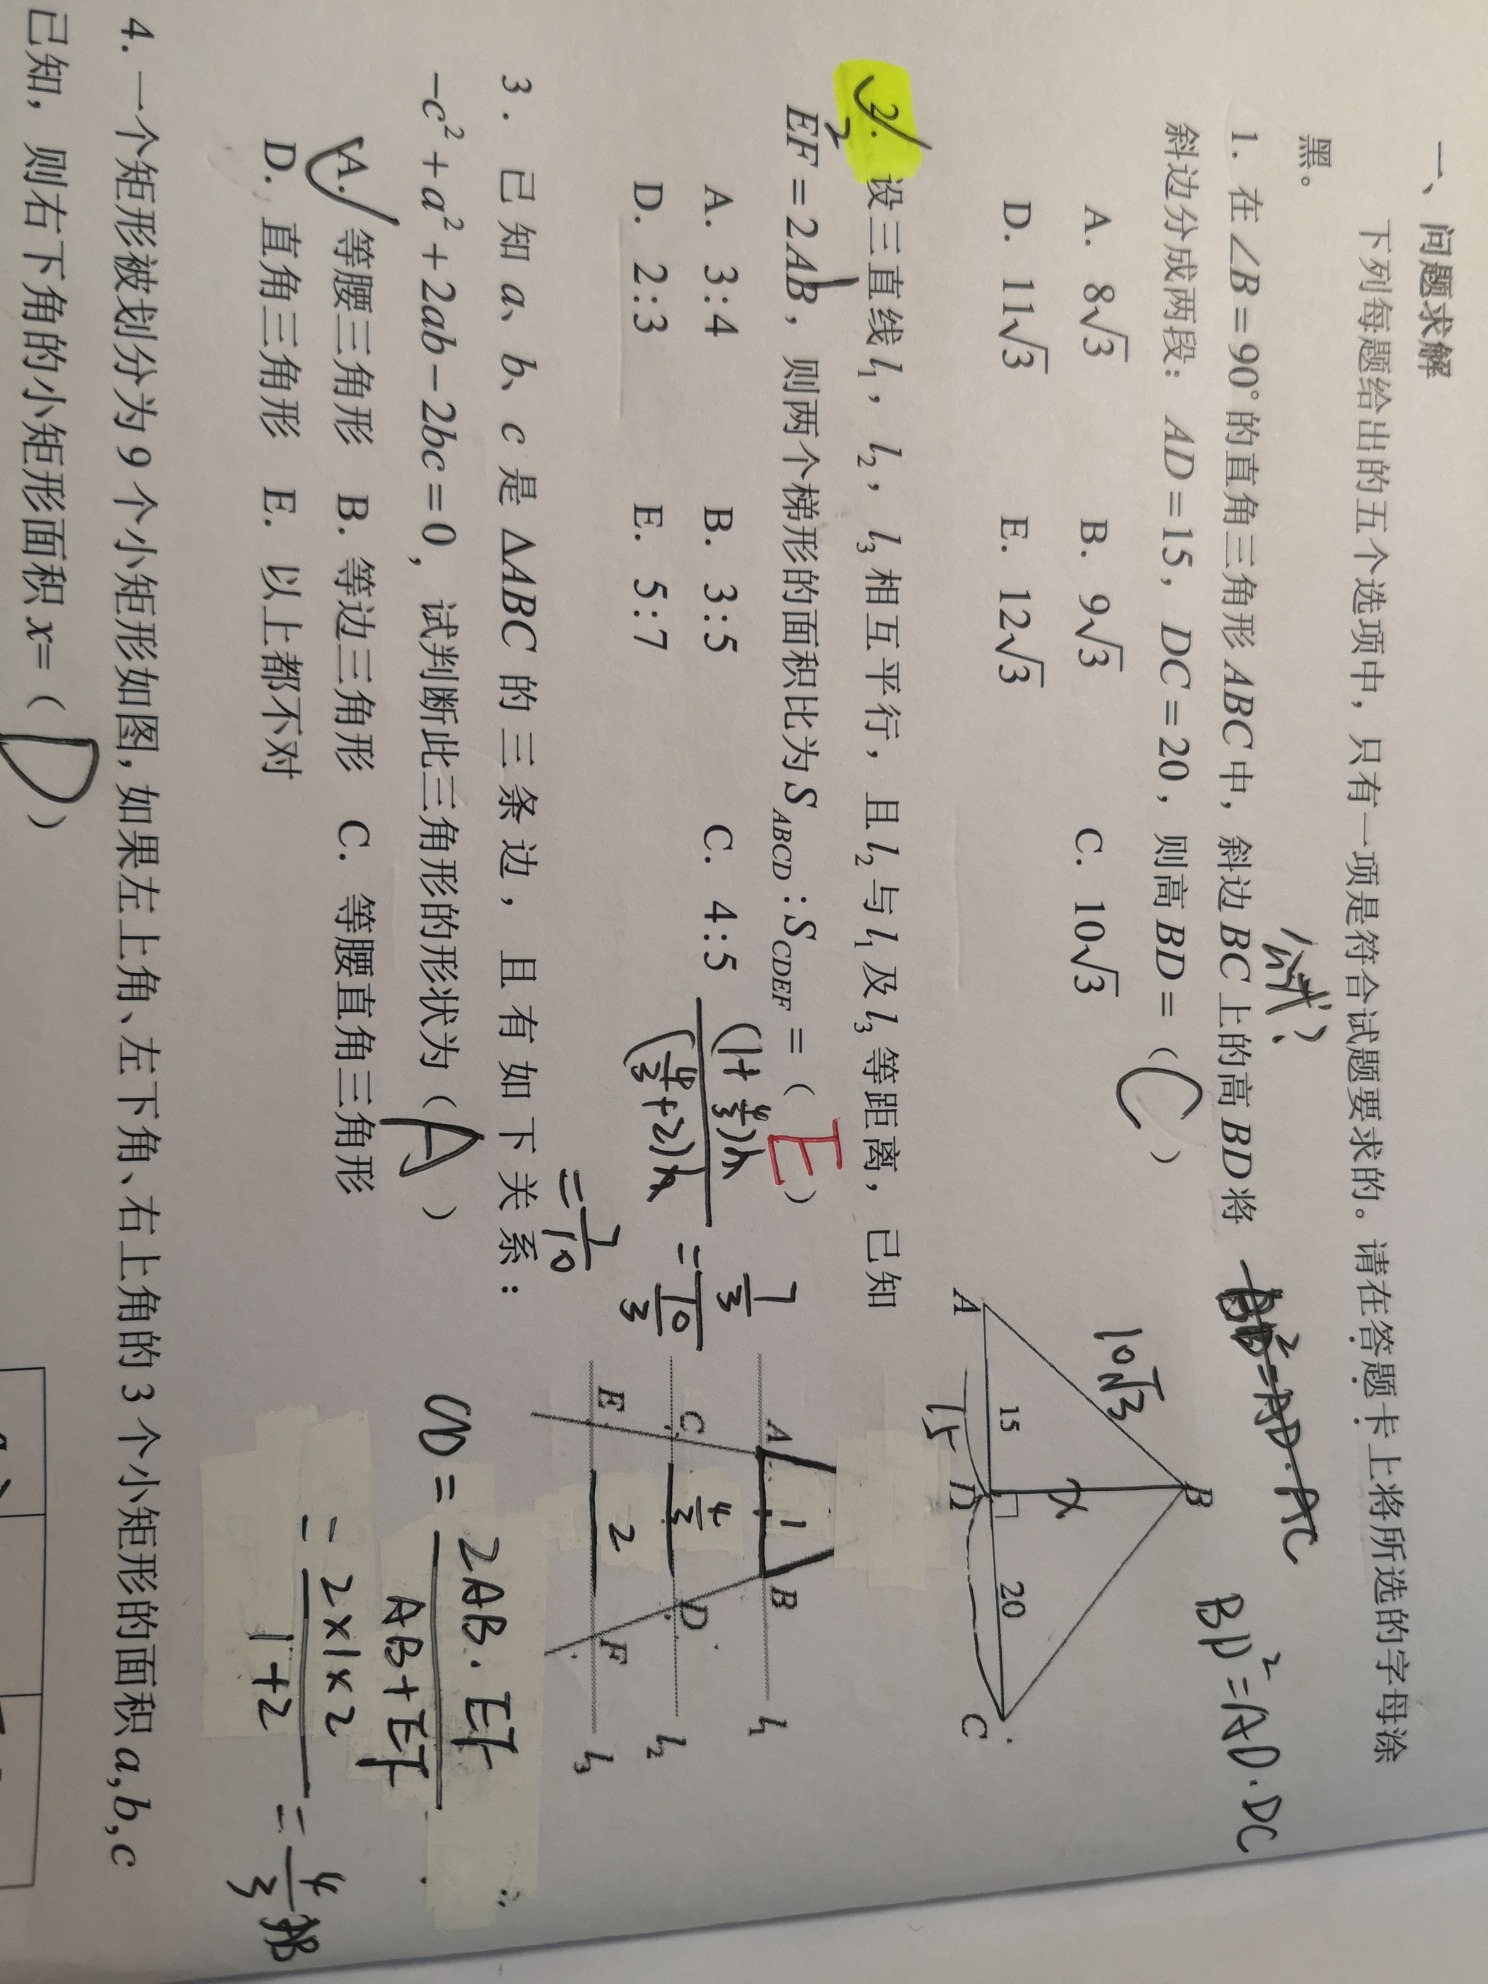 一、问题求解
下列每题给出的五个选项中，只有一项是符合试题要求的。请在答题卡上将所选的字母涂
黑。
1. 在∠B=90°的直角三角形 ABC 中，斜边 BC 上的高 BD 将
斜边分成两段：AD=15，DC=20，则高 BD=（ C ）
公式
BD²=AD·AC
BD²=AD·DC
A. 8√3 B. 9√3 C. 10√3
D. 11√3 E. 12√3
10√3
B
x
A 15 D 20 C
15
2. 设三直线 l₁，l₂，l₃ 相互平行，且 l₂ 与 l₁ 及 l₃ 等距离，已知
EF=2AB，则两个梯形的面积比为 S_ABCD : S_CDEF =（ E ）
2 1
A. 3:4 B. 3:5 C. 4:5
D. 2:3 E. 5:7
(1+4/3)h/(4/3+2)h = 7/3 / 10/3
= 7/10
A 1 B l₁
C 4/3 D l₂
E 2 F l₃
CD = 2AB·EF/AB+EF
= 2×1×2/1+2 = 4/3 AB
3. 已知 a、b、c 是 ΔABC 的三条边，且有如下关系：
-c²+a²+2ab-2bc=0，试判断此三角形的形状为（ A ）
A. 等腰三角形 B. 等边三角形 C. 等腰直角三角形
D. 直角三角形 E. 以上都不对
4. 一个矩形被划分为 9 个小矩形如图，如果左上角、左下角、右上角的 3 个小矩形的面积 a,b,c
已知，则右下角的小矩形面积 x=（ D ）